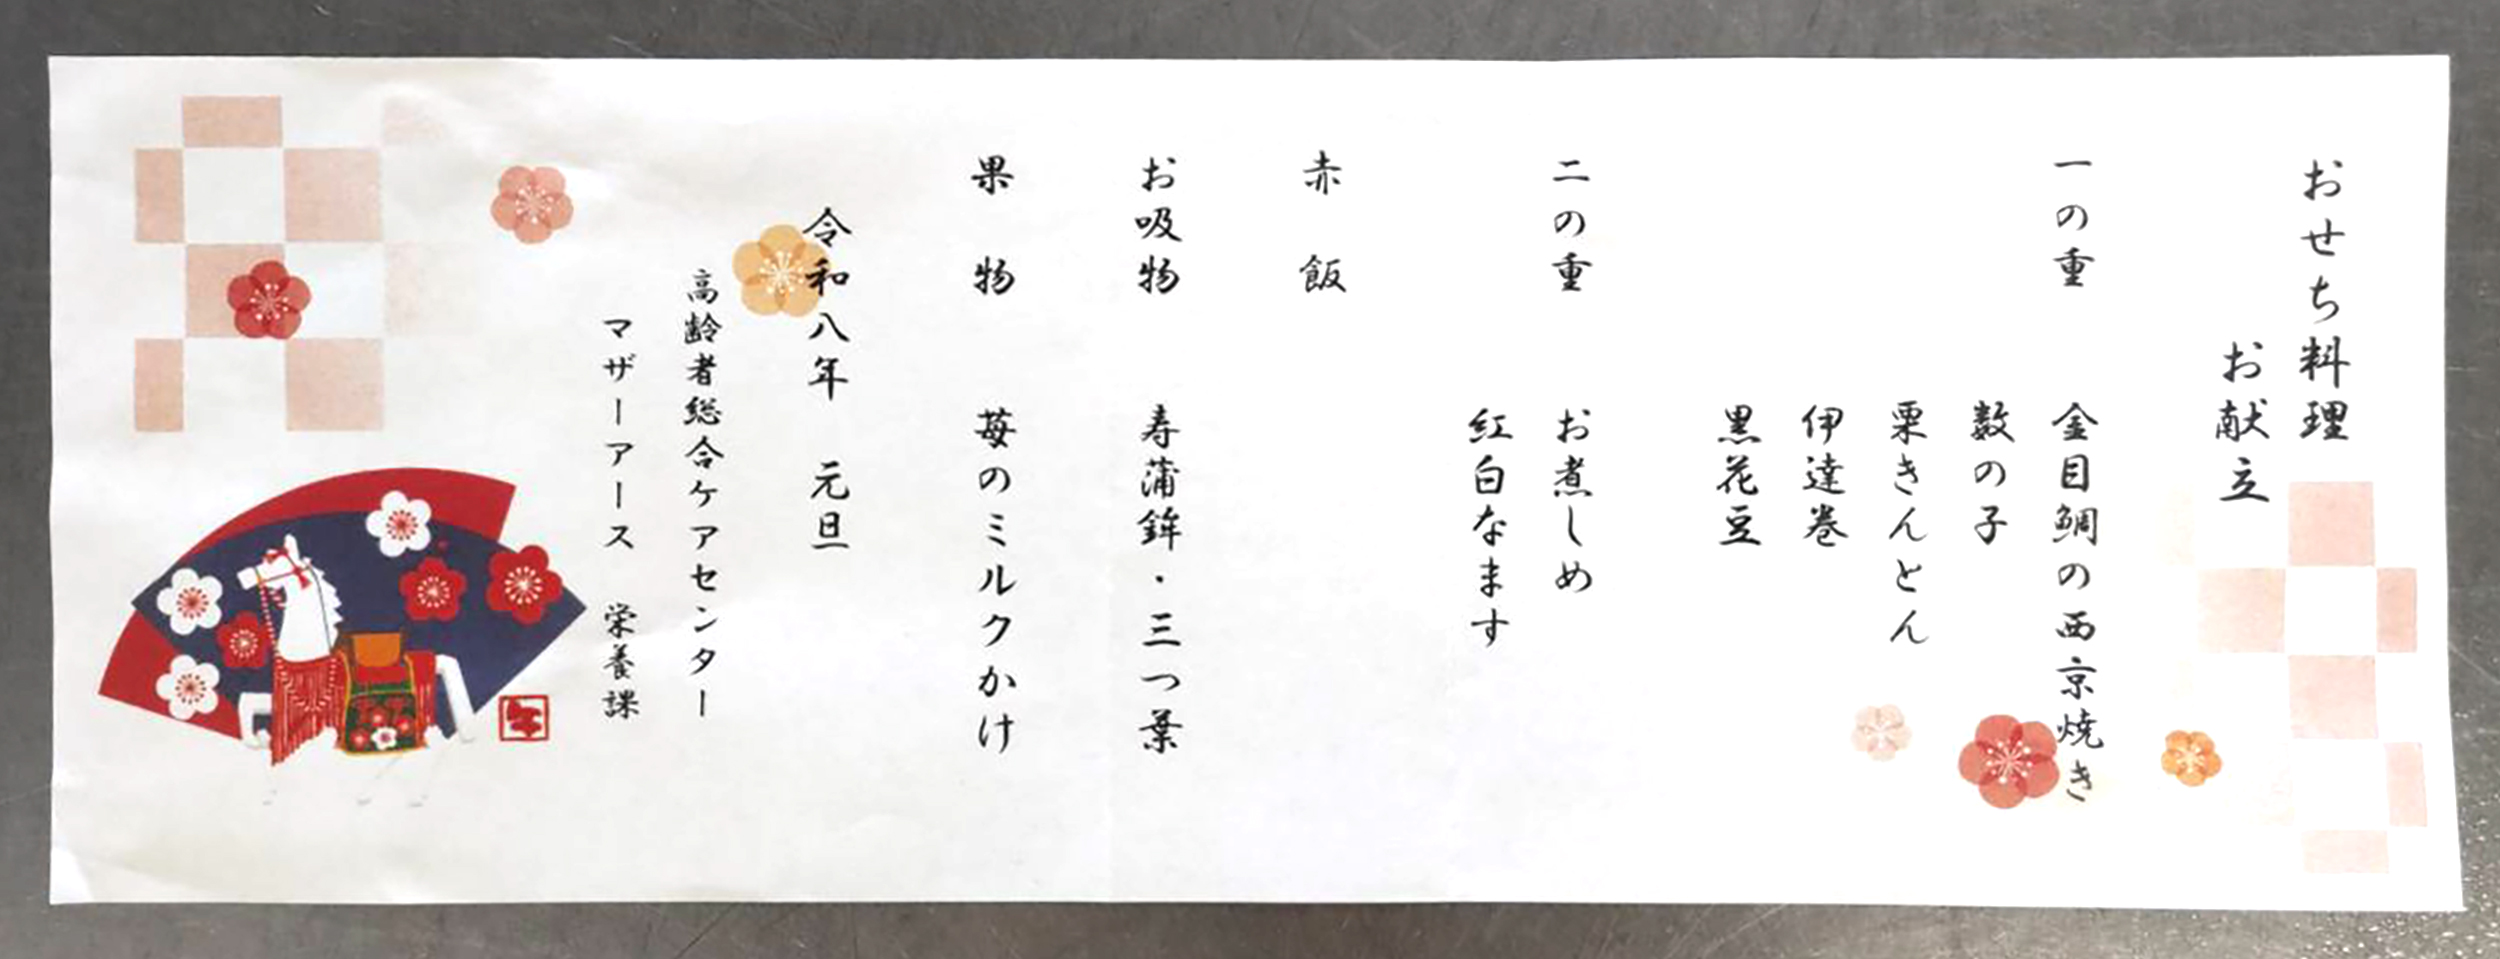 おせち料理
お献立
一の重　金目鯛の西京焼き
数の子
栗きんとん
伊達巻
黒花豆
二の重　お煮しめ
紅白なます
赤飯
お吸物　寿蒲鉾・三つ葉
果物　苺のミルクかけ
令和八年　元旦
高齢者総合ケアセンター
マザーアース　栄養課
午